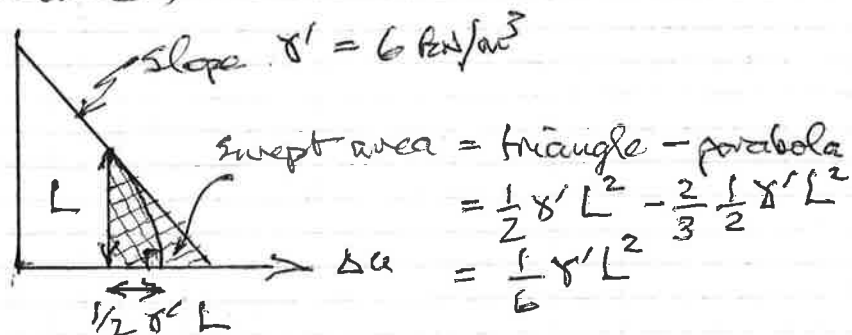 slope γ' = 6 kN/m³
swept area = triangle - parabola
= 1/2 γ' L² - 2/3 1/2 γ' L²
L
Δu
= 1/6 γ' L²
1/2 γ' L